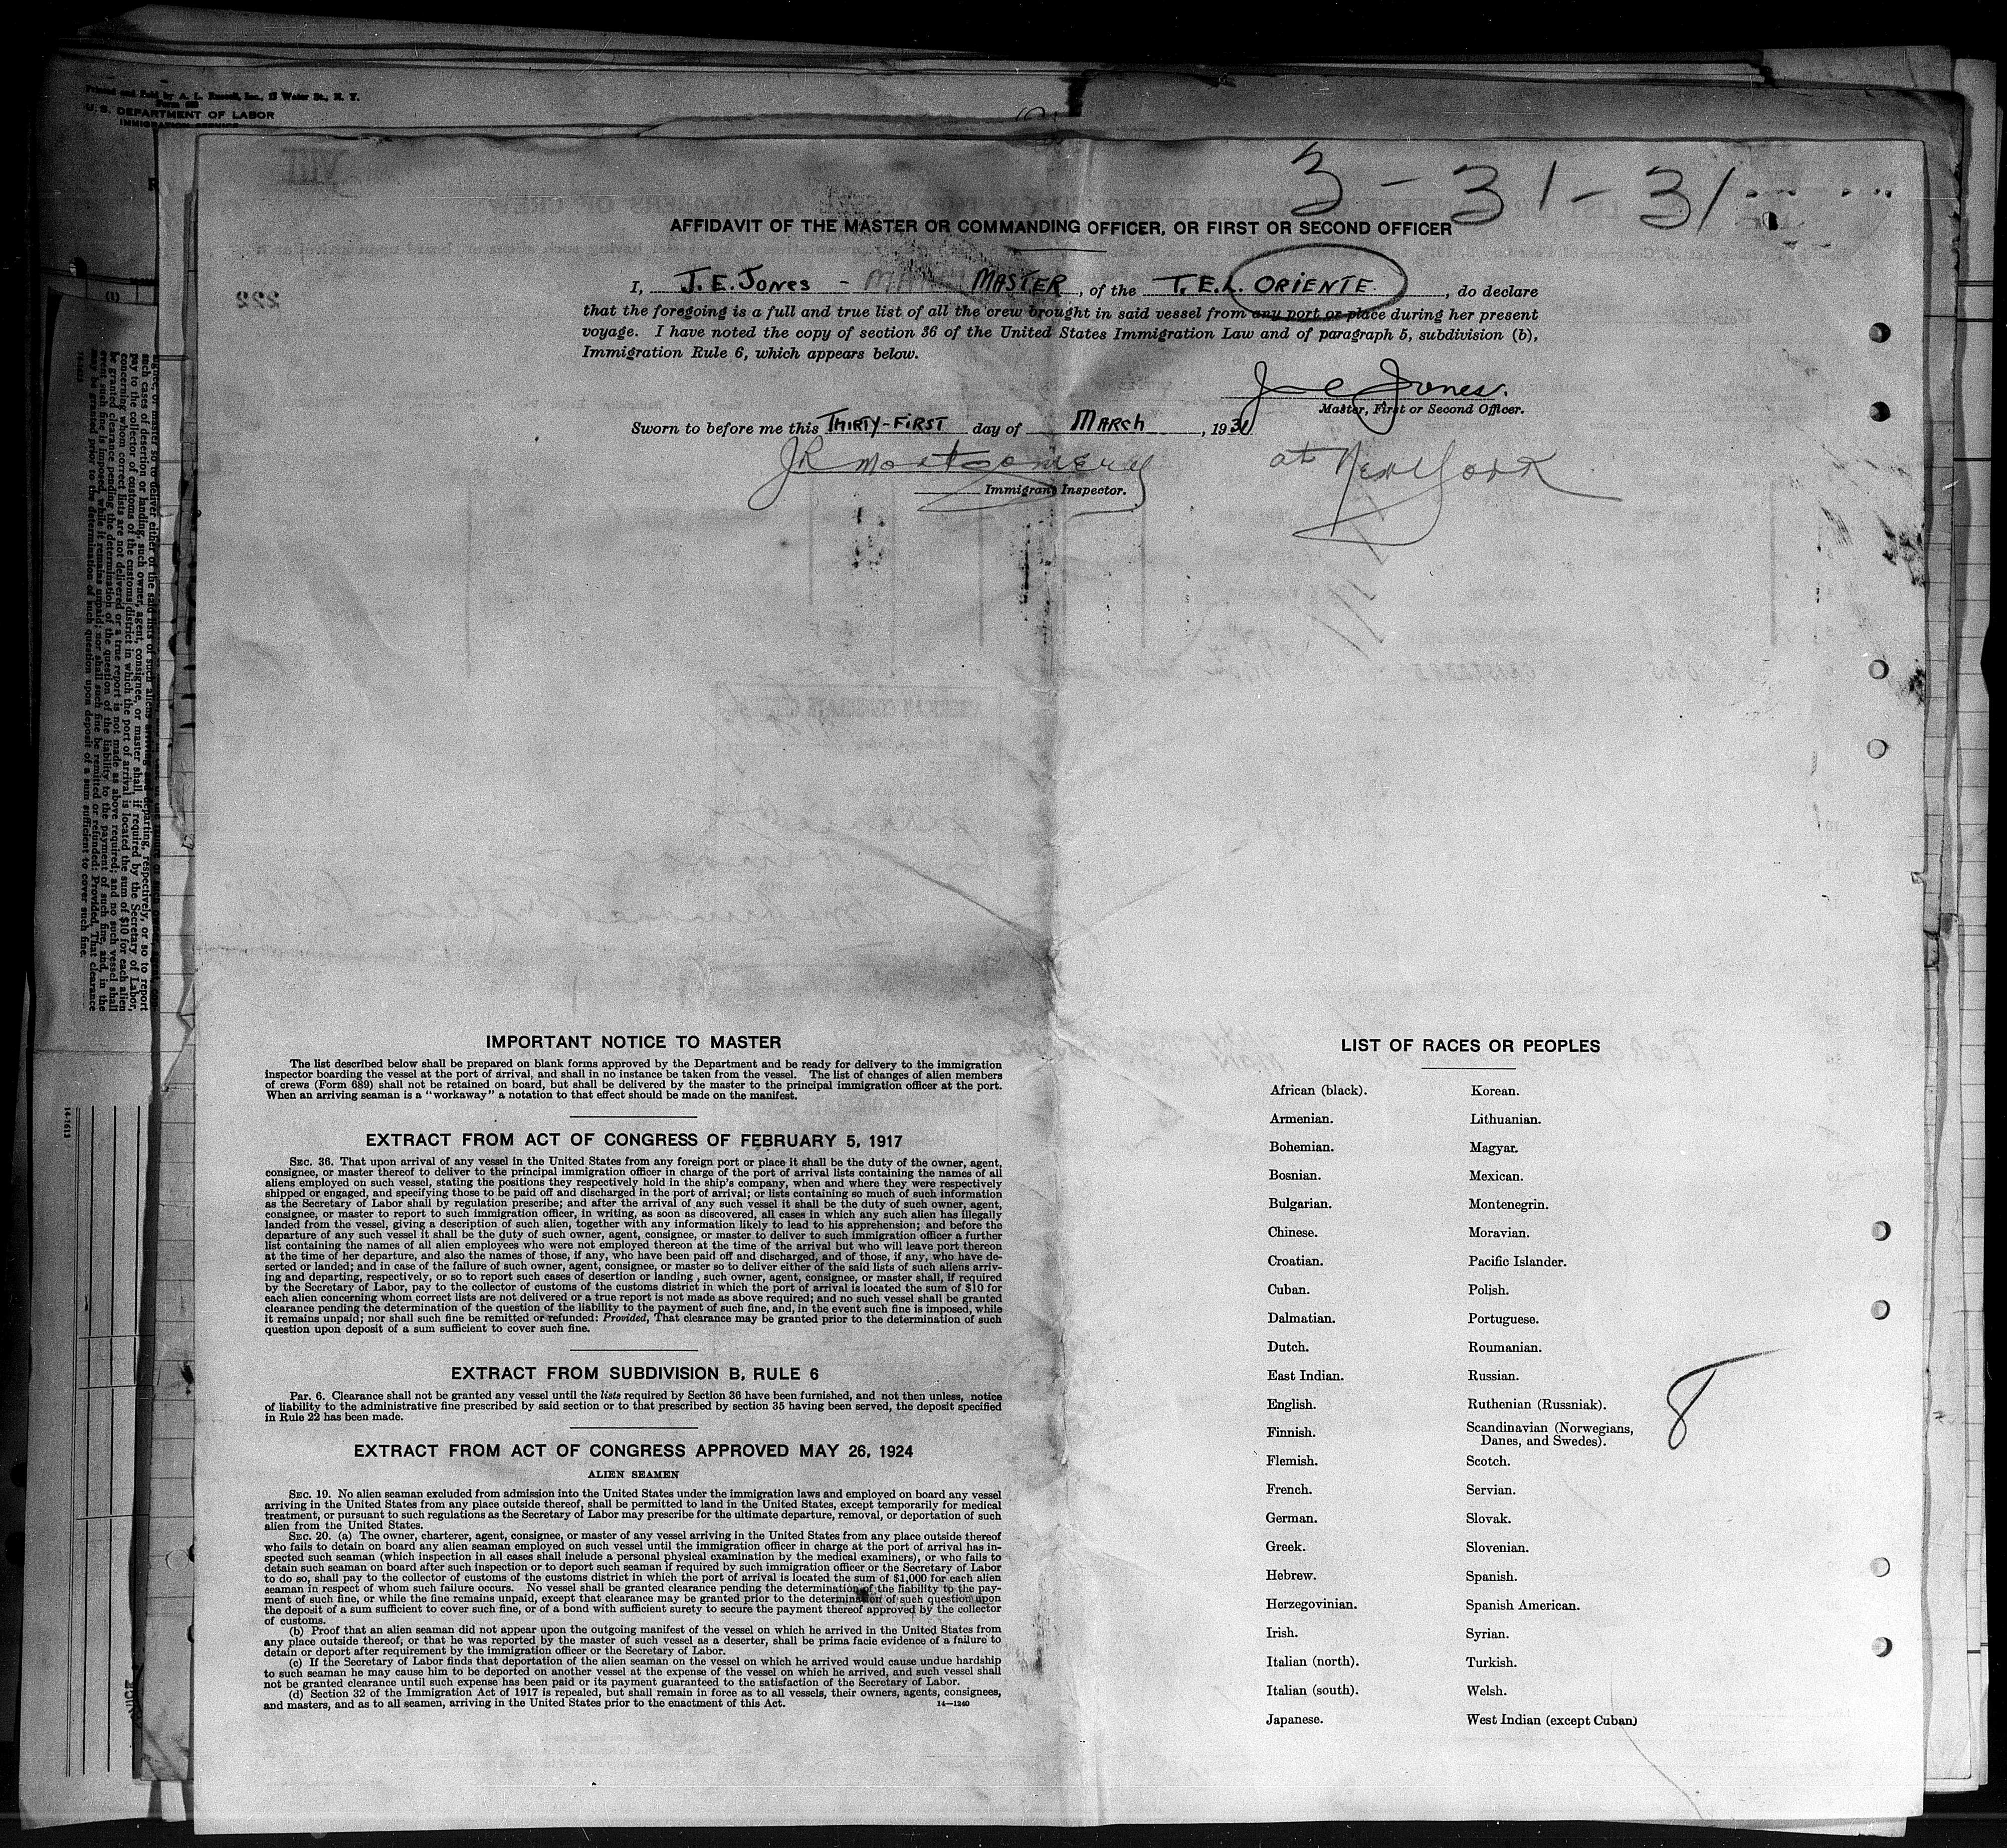 Printed and Sold by A. L. Russell, Inc., 13 Water St., N. Y.
U. S. DEPARTMENT OF LABOR
IMMIGRATION SERVICE
3 - 31 - 31
AFFIDAVIT OF THE MASTER OR COMMANDING OFFICER, OR FIRST OR SECOND OFFICER
I, J. E. JONES - MASTER, of the T. E. L. ORIENTE, do declare
that the foregoing is a full and true list of all the crew brought in said vessel from any port or place during her present
voyage. I have noted the copy of section 36 of the United States Immigration Law and of paragraph 5, subdivision (b),
Immigration Rule 6, which appears below.
Jones.
Master, First or Second Officer.
Sworn to before me this THIRTY-FIRST day of MARCH, 1931
JR Montgomery at New York
Immigrant Inspector.
IMPORTANT NOTICE TO MASTER
The list described below shall be prepared on blank forms approved by the Department and be ready for delivery to the immigration
inspector boarding the vessel at the port of arrival, and shall in no instance be taken from the vessel. The list of changes of alien members
of crews (Form 689) shall not be retained on board, but shall be delivered by the master to the principal immigration officer at the port.
When an arriving seaman is a "workaway" a notation to that effect should be made on the manifest.
EXTRACT FROM ACT OF CONGRESS OF FEBRUARY 5, 1917
SEC. 36. That upon arrival of any vessel in the United States from any foreign port or place it shall be the duty of the owner, agent,
consignee, or master thereof to deliver to the principal immigration officer in charge of the port of arrival lists containing the names of all
aliens employed on such vessel, stating the positions they respectively hold in the ship's company, when and where they were respectively
shipped or engaged, and specifying those to be paid off and discharged in the port of arrival; or lists containing so much of such information
as the Secretary of Labor shall by regulation prescribe; and after the arrival of any such vessel it shall be the duty of such owner, agent,
consignee, or master to report to such immigration officer, in writing, as soon as discovered, all cases in which any such alien has illegally
landed from the vessel, giving a description of such alien, together with any information likely to lead to his apprehension; and before the
departure of any such vessel it shall be the duty of such owner, agent, consignee, or master to deliver to such immigration officer a further
list containing the names of all alien employees who were not employed thereon at the time of the arrival but who will leave port thereon
at the time of her departure, and also the names of those, if any, who have been paid off and discharged, and of those, if any, who have de-
serted or landed; and in case of the failure of such owner, agent, consignee, or master so to deliver either of the said lists of such aliens arriv-
ing and departing, respectively, or so to report such cases of desertion or landing, such owner, agent, consignee, or master shall, if required
by the Secretary of Labor, pay to the collector of customs of the customs district in which the port of arrival is located the sum of $10 for
each alien concerning whom correct lists are not delivered or a true report is not made as above required; and no such vessel shall be granted
clearance pending the determination of the question of the liability to the payment of such fine, and, in the event such fine is imposed, while
it remains unpaid; nor shall such fine be remitted or refunded: Provided, That clearance may be granted prior to the determination of such
question upon deposit of a sum sufficient to cover such fine.
EXTRACT FROM SUBDIVISION B, RULE 6
Par. 6. Clearance shall not be granted any vessel until the lists required by Section 36 have been furnished, and not then unless, notice
of liability to the administrative fine prescribed by said section or to that prescribed by section 35 having been served, the deposit specified
in Rule 22 has been made.
EXTRACT FROM ACT OF CONGRESS APPROVED MAY 26, 1924
ALIEN SEAMEN
SEC. 19. No alien seaman excluded from admission into the United States under the immigration laws and employed on board any vessel
arriving in the United States from any place outside thereof, shall be permitted to land in the United States, except temporarily for medical
treatment, or pursuant to such regulations as the Secretary of Labor may prescribe for the ultimate departure, removal, or deportation of such
alien from the United States.
SEC. 20. (a) The owner, charterer, agent, consignee, or master of any vessel arriving in the United States from any place outside thereof
who fails to detain on board any alien seaman employed on such vessel until the immigration officer in charge at the port of arrival has in-
spected such seaman (which inspection in all cases shall include a personal physical examination by the medical examiners), or who fails to
detain such seaman on board after such inspection or to deport such seaman if required by such immigration officer or the Secretary of Labor
to do so, shall pay to the collector of customs of the customs district in which the port of arrival is located the sum of $1,000 for each alien
seaman in respect of whom such failure occurs. No vessel shall be granted clearance pending the determination of the liability to the pay-
ment of such fine, or while the fine remains unpaid, except that clearance may be granted prior to the determination of such question upon
the deposit of a sum sufficient to cover such fine, or of a bond with sufficient surety to secure the payment thereof approved by the collector
of customs.
(b) Proof that an alien seaman did not appear upon the outgoing manifest of the vessel on which he arrived in the United States from
any place outside thereof, or that he was reported by the master of such vessel as a deserter, shall be prima facie evidence of a failure to
detain or deport after requirement by the immigration officer or the Secretary of Labor.
(c) If the Secretary of Labor finds that deportation of the alien seaman on the vessel on which he arrived would cause undue hardship
to such seaman he may cause him to be deported on another vessel at the expense of the vessel on which he arrived, and such vessel shall
not be granted clearance until such expense has been paid or its payment guaranteed to the satisfaction of the Secretary of Labor.
(d) Section 32 of the Immigration Act of 1917 is repealed, but shall remain in force as to all vessels, their owners, agents, consignees,
and masters, and as to all seamen, arriving in the United States prior to the enactment of this Act. 14—1240
LIST OF RACES OR PEOPLES
African (black). Korean.
Armenian. Lithuanian.
Bohemian. Magyar.
Bosnian. Mexican.
Bulgarian. Montenegrin.
Chinese. Moravian.
Croatian. Pacific Islander.
Cuban. Polish.
Dalmatian. Portuguese.
Dutch. Roumanian.
East Indian. Russian.
English. Ruthenian (Russniak).
Finnish. Scandinavian (Norwegians,
Danes, and Swedes).
Flemish. Scotch.
French. Servian.
German. Slovak.
Greek. Slovenian.
Hebrew. Spanish.
Herzegovinian. Spanish American.
Irish. Syrian.
Italian (north). Turkish.
Italian (south). Welsh.
Japanese. West Indian (except Cuban)
8